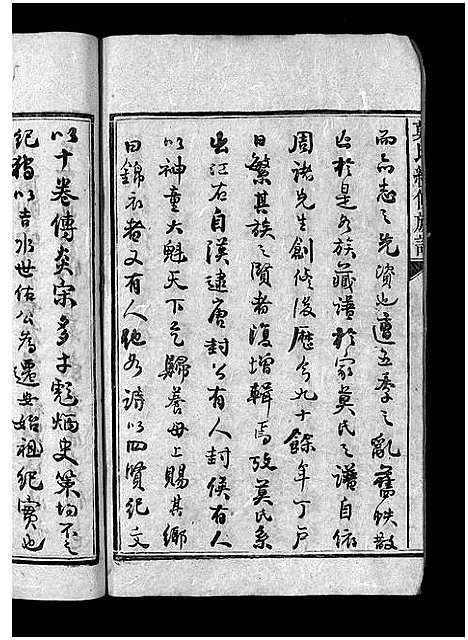 莫氏新修族譜
而亦志之先資也遭五季之亂舊帙散
亡於是各族藏譜於家莫氏之譜自依
周諸先生創修後歷今九十餘年丁戶
日繁其族之賢者復增輯焉攷莫氏系
出江右自漢逮唐封公有人封侯有人
以神童大魁天下乞歸養母上賜其鄉
曰錦衣者又有人他如詩以四賢紀文
以十卷傳炎宋多才彪炳史策均不之
紀猶以吉水世佑公為遷安始祖紀實也